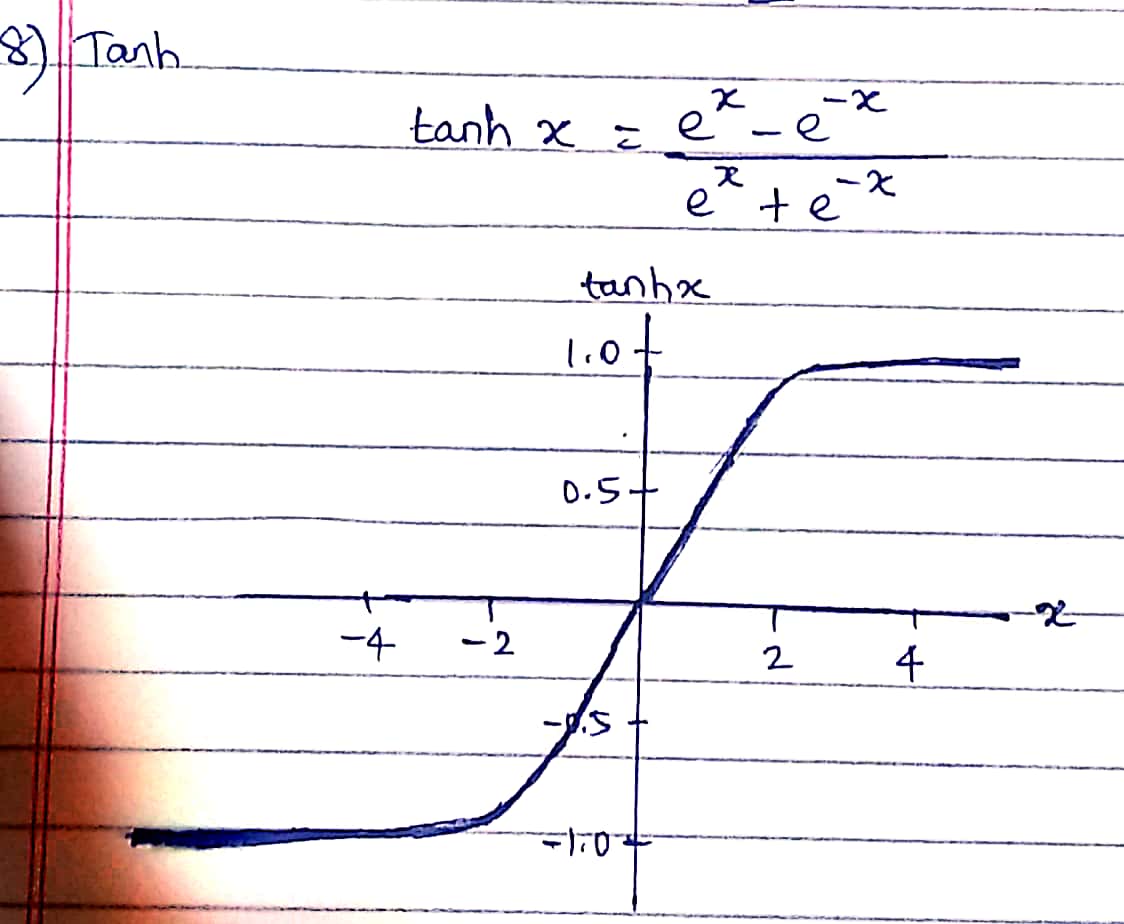 8) Tanh
tanh x = e^x - e^-x
e^x + e^-x
tanhx
1.0
0.5
-4 -2 2 4 x
-0.5
-1.0